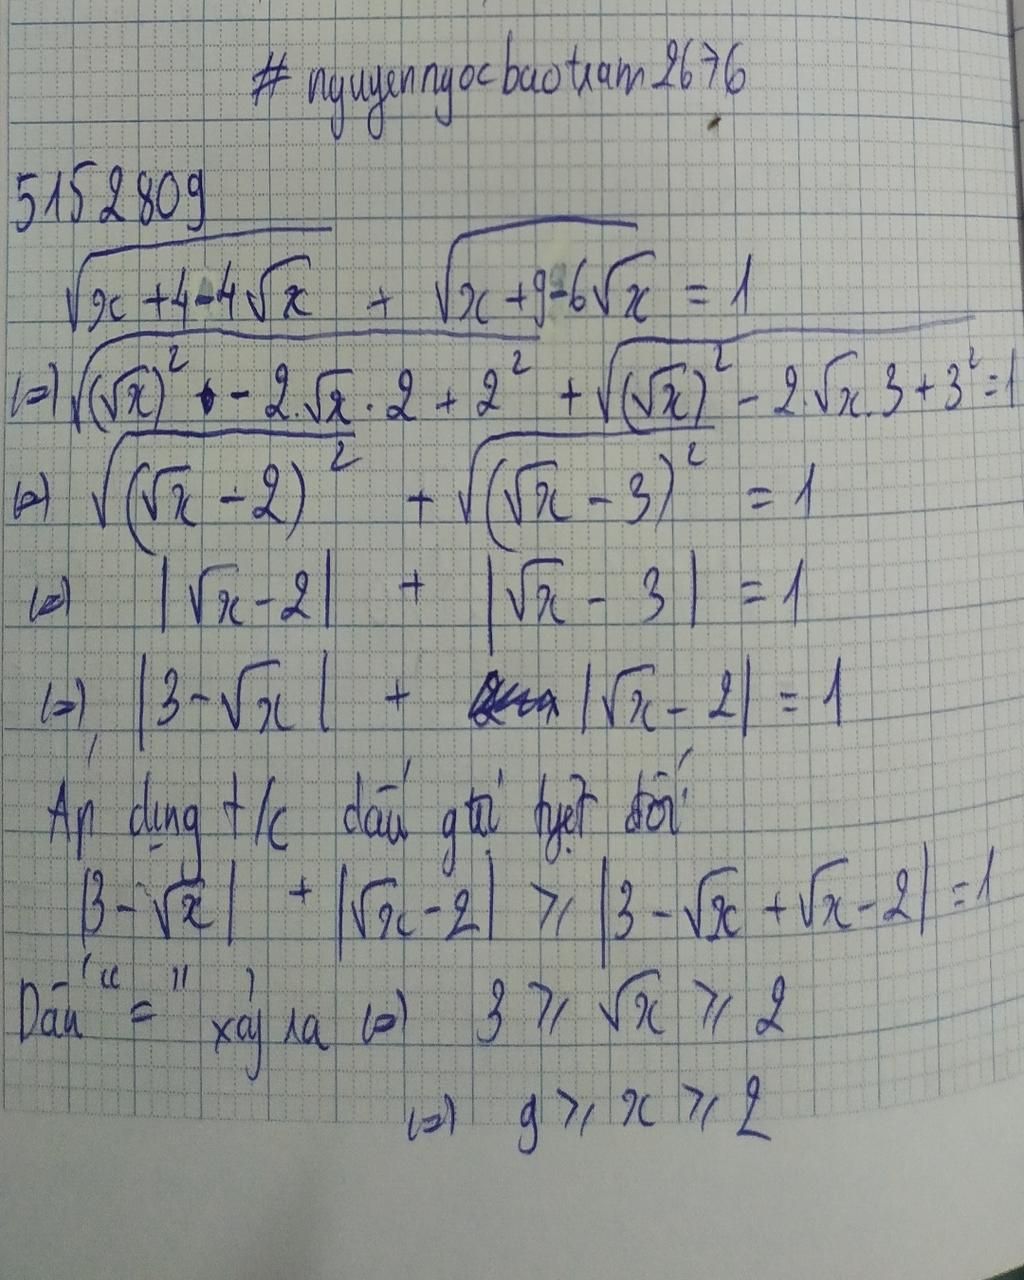 # nguyenngocbaotram2676
5152809
√(x + 4 - 4√x) + √(x + 9 - 6√x) = 1
(=) √((√x)² - 2.√x . 2 + 2²) + √((√x)² - 2.√x . 3 + 3²) = 1
(=) √((√x - 2)²) + √((√x - 3)²) = 1
(=) |√x - 2| + |√x - 3| = 1
(=) |3 - √x| + |√x - 2| = 1
Áp dụng t/c dấu gtrị tuyệt đối
|3 - √x| + |√x - 2| ⩾ |3 - √x + √x - 2| = 1
Dấu "=" xảy ra (=) 3 ⩾ √x ⩾ 2
(=) 9 ⩾ x ⩾ 2